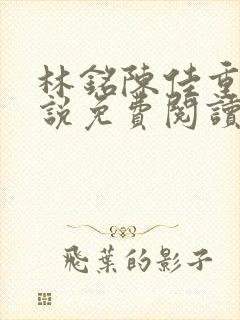 林銘陳佳重
說免費閱讀
飛葉的影子